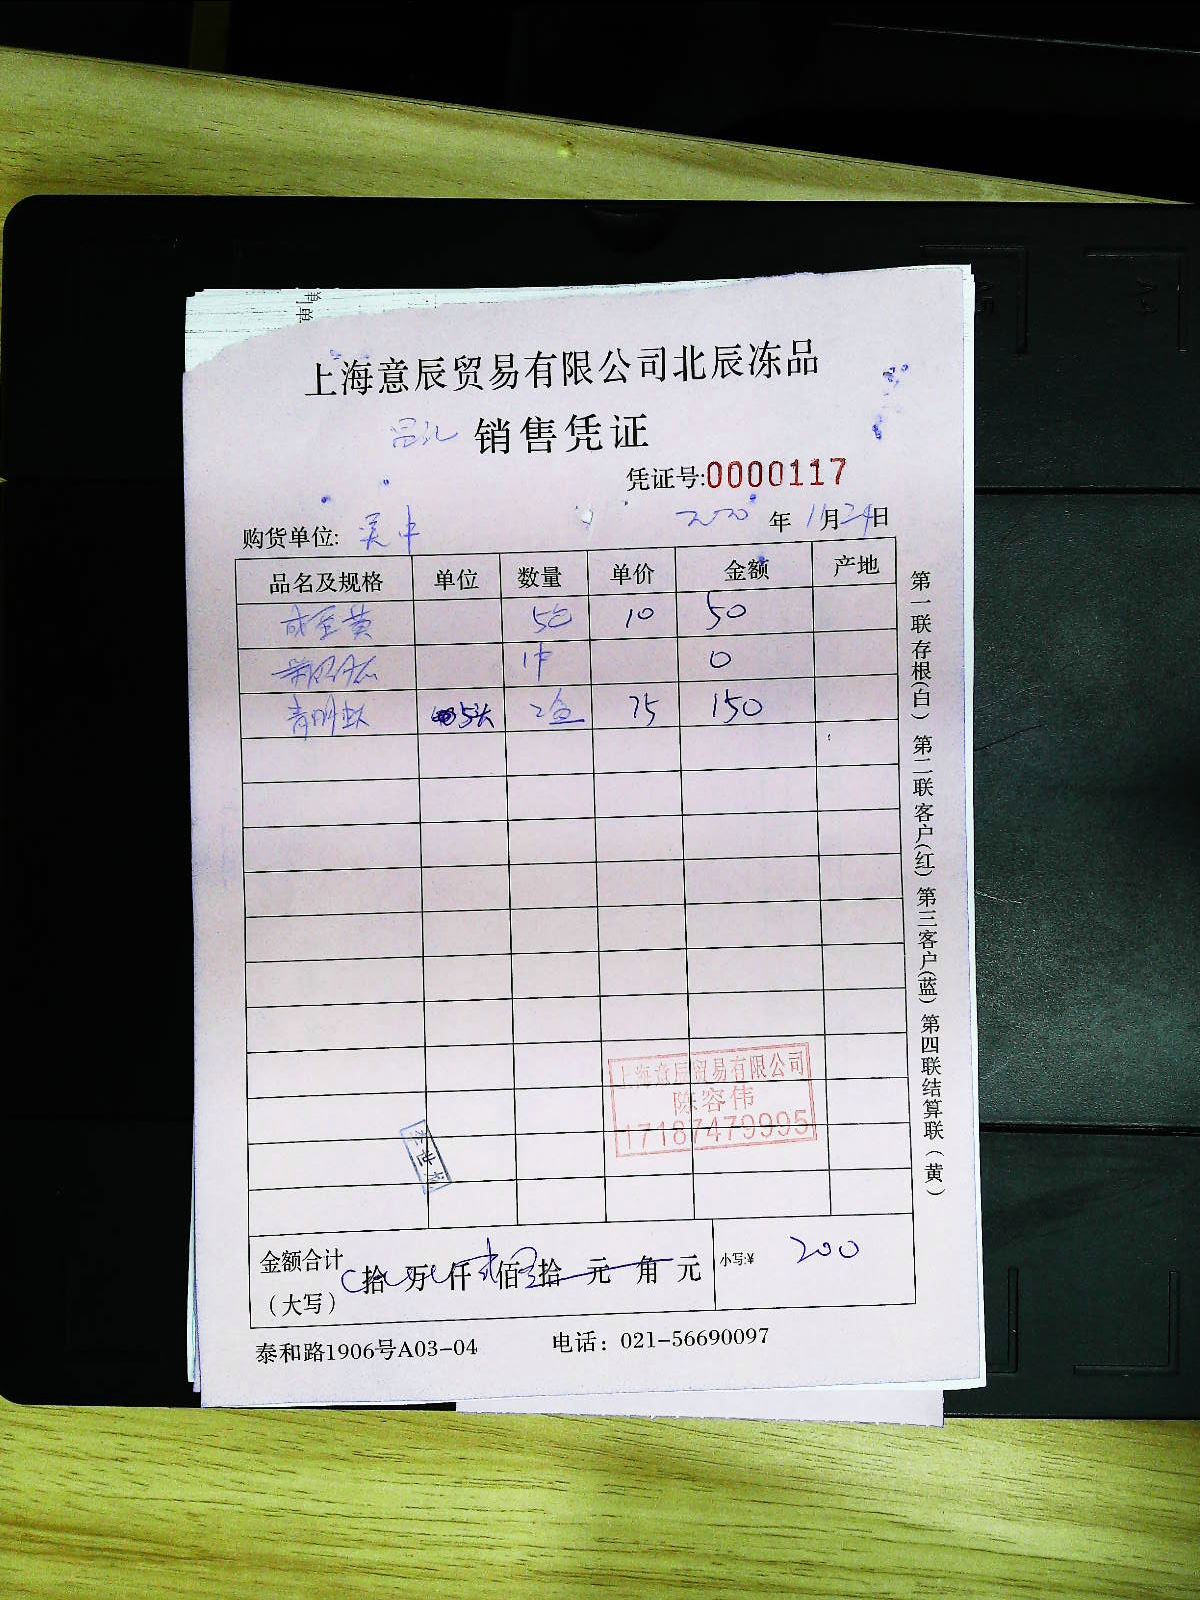 上海意辰贸易有限公司北辰冻品
销售凭证
凭证号:0000117
购货单位: 吴中 2020 年 11月24日
品名及规格 单位 数量 单价 金额 产地
咸蛋黄 5包 10 50
1件 0
青明虾 5头 2盒 75 150
上海意辰贸易有限公司
陈容伟
17187479995
金额合计
(大写) 拾 万 仟 贰佰 拾 元 角 元 小写:¥ 200
泰和路1906号A03-04 电话：021-56690097
第一联存根(白) 第二联客户(红) 第三客户(蓝) 第四联结算联(黄)